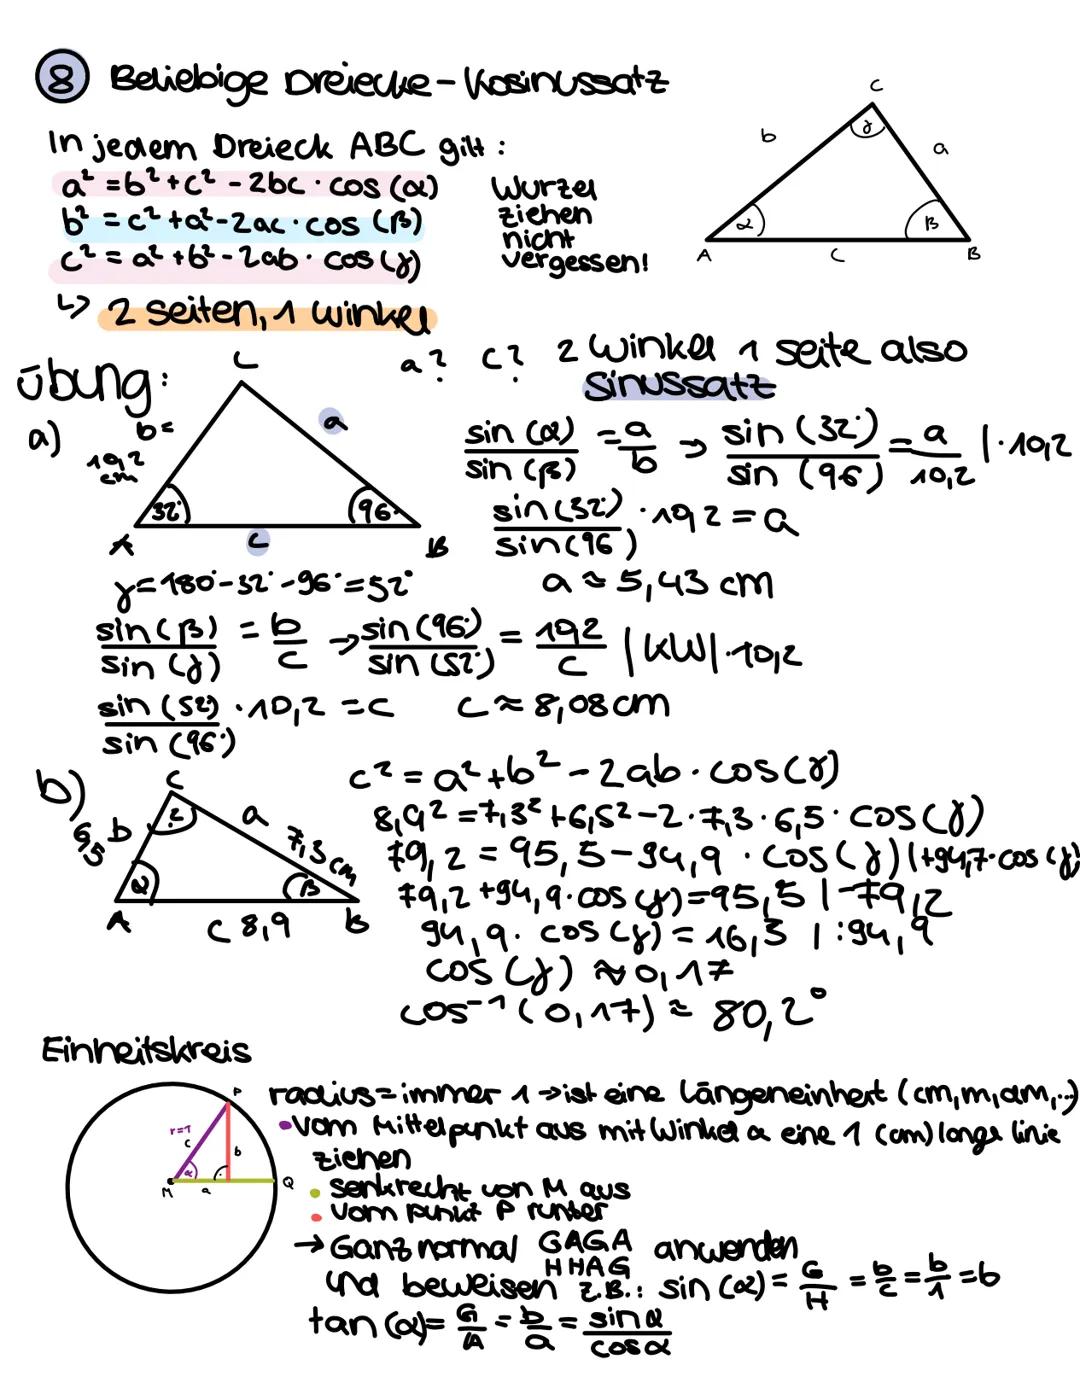 8 Beliebige Dreiecke - Kosinussatz
In jedem Dreieck ABC gilt:
a² = b² + c² - 2bc · cos (α)
b² = c² + a² - 2ac · cos (β)
c² = a² + b² - 2ab · cos (γ)
Wurzel
ziehen
nicht
vergessen!
↳ 2 Seiten, 1 Winkel
C
b
γ
a
α
β
A
c
B
Übung:
a? c? 2 Winkel 1 Seite also
Sinussatz
a)
C
b=
10,2
cm
a
32°
96°
A
c
B
sin (α)/sin (β) = a/b → sin (32°)/sin (96) = a/10,2 | · 10,2
sin (32°)/sin (96) · 10,2 = a
γ = 180° - 32° - 96° = 52°
a ≈ 5,43 cm
sin (β)/sin (γ) = b/c → sin (96°)/sin (52°) = 10,2/c | KW | · 10,2
sin (52)/sin (96°) · 10,2 = c
c ≈ 8,08 cm
b)
C
6,5
b
a
7,3 cm
α
β
A
c 8,9
B
c² = a² + b² - 2ab · cos (γ)
8,9² = 7,3² + 6,5² - 2 · 7,3 · 6,5 · cos (γ)
79,2 = 95,5 - 94,9 · cos (γ) | + 94,7 · cos (γ)
79,2 + 94,9 · cos (γ) = 95,5 | - 79,2
94,9 · cos (γ) = 16,3 | : 94,9
cos (γ) ≈ 0,17
cos⁻¹ (0,17) ≈ 80,2°
Einheitskreis
P
r=1
c
b
α
M
a
Q
radius = immer 1 → ist eine Längeneinheit (cm, m, dm, ..)
• Vom Mittelpunkt aus mit Winkel α eine 1 (cm) lange linie
ziehen
• senkrecht von M aus
• vom punkt P runter
→ Ganz normal GAGA anwenden
HHAG
und beweisen z.B.: sin (α) = G/H = b/c = b/1 = b
tan (α) = G/A = b/a = sin α/cos α